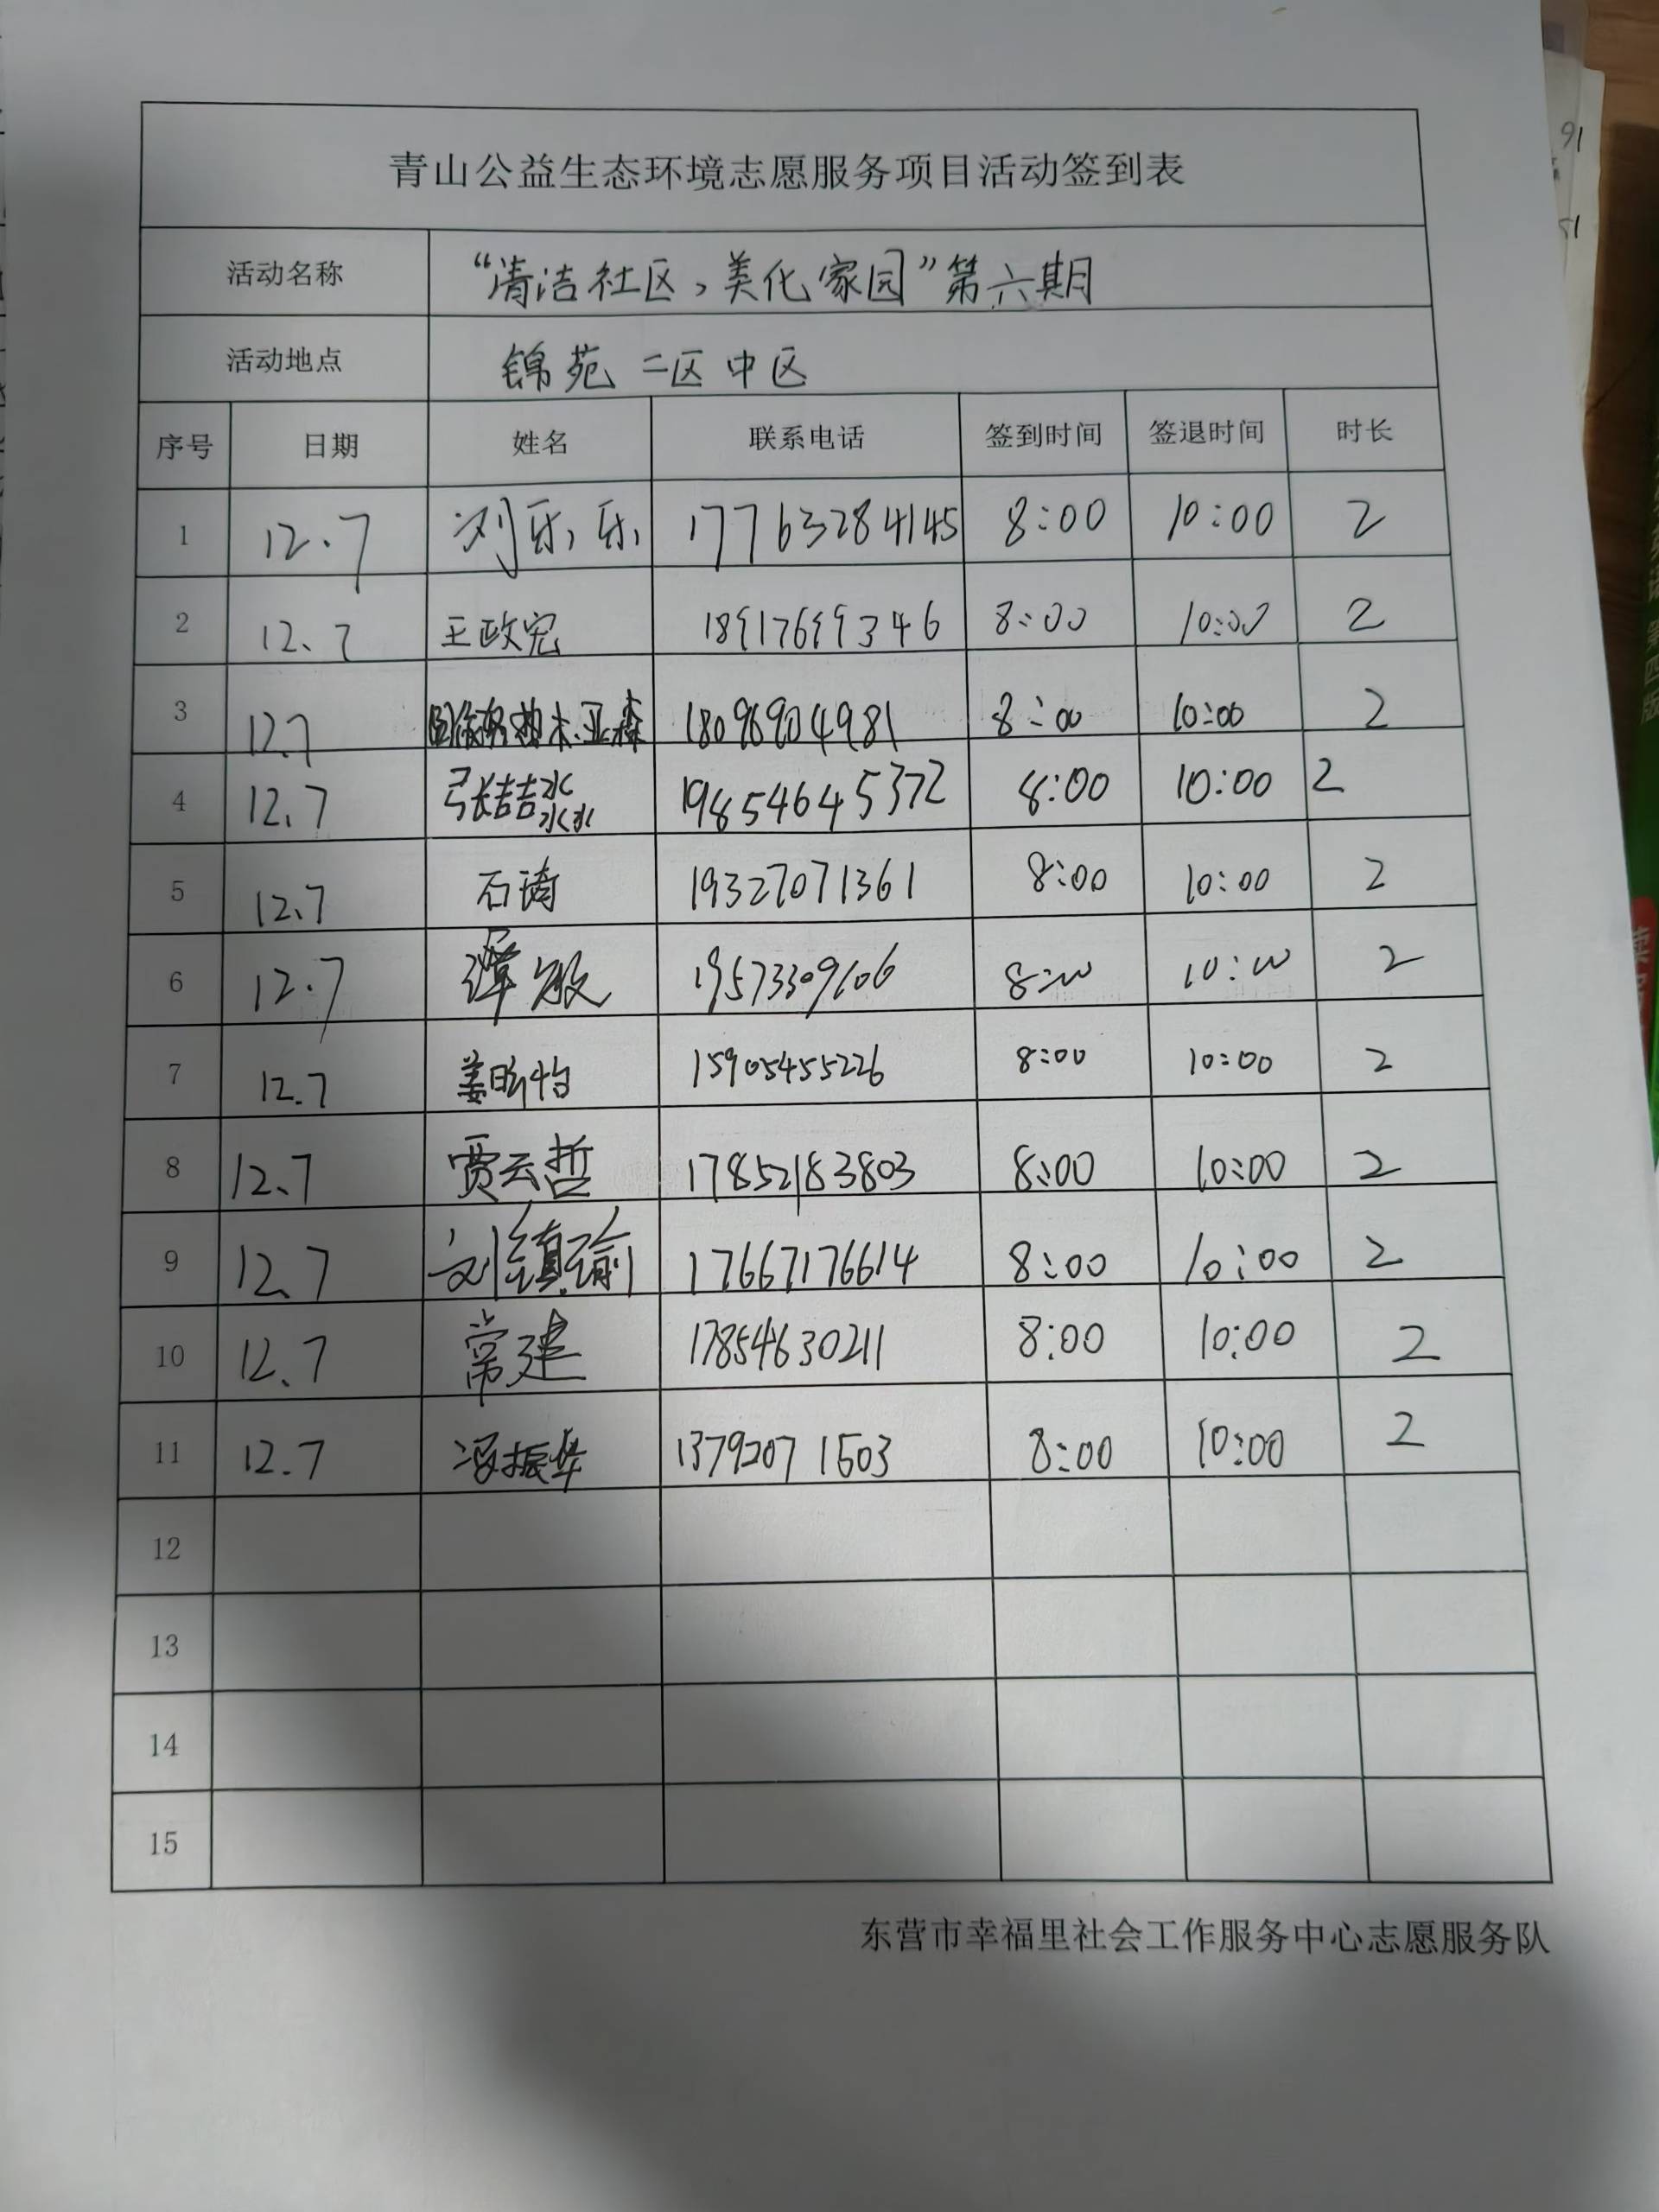 青山公益生态环境志愿服务项目活动签到表
活动名称 “清洁社区，美化家园”第六期
活动地点 锦苑二区中区
序号 日期 姓名 联系电话 签到时间 签退时间 时长
1 12.7 刘乐乐 17763284145 8:00 10:00 2
2 12.7 王政宪 8:00 10:00 2
3 12.7 亚森 18096904981 8:00 10:00 2
4 12.7 张喆淼 19854645372 8:00 10:00 2
5 12.7 石琦 19327071361 8:00 10:00 2
6 12.7 谭敏 19573309106 8:00 10:00 2
7 12.7 姜昕怡 15905455226 8:00 10:00 2
8 12.7 贾云哲 17852183803 8:00 10:00 2
9 12.7 刘镇瑜 17667176614 8:00 10:00 2
10 12.7 常建 17854630211 8:00 10:00 2
11 12.7 冯振华 13792071503 8:00 10:00 2
12
13
14
15
东营市幸福里社会工作服务中心志愿服务队
91
51
第四版